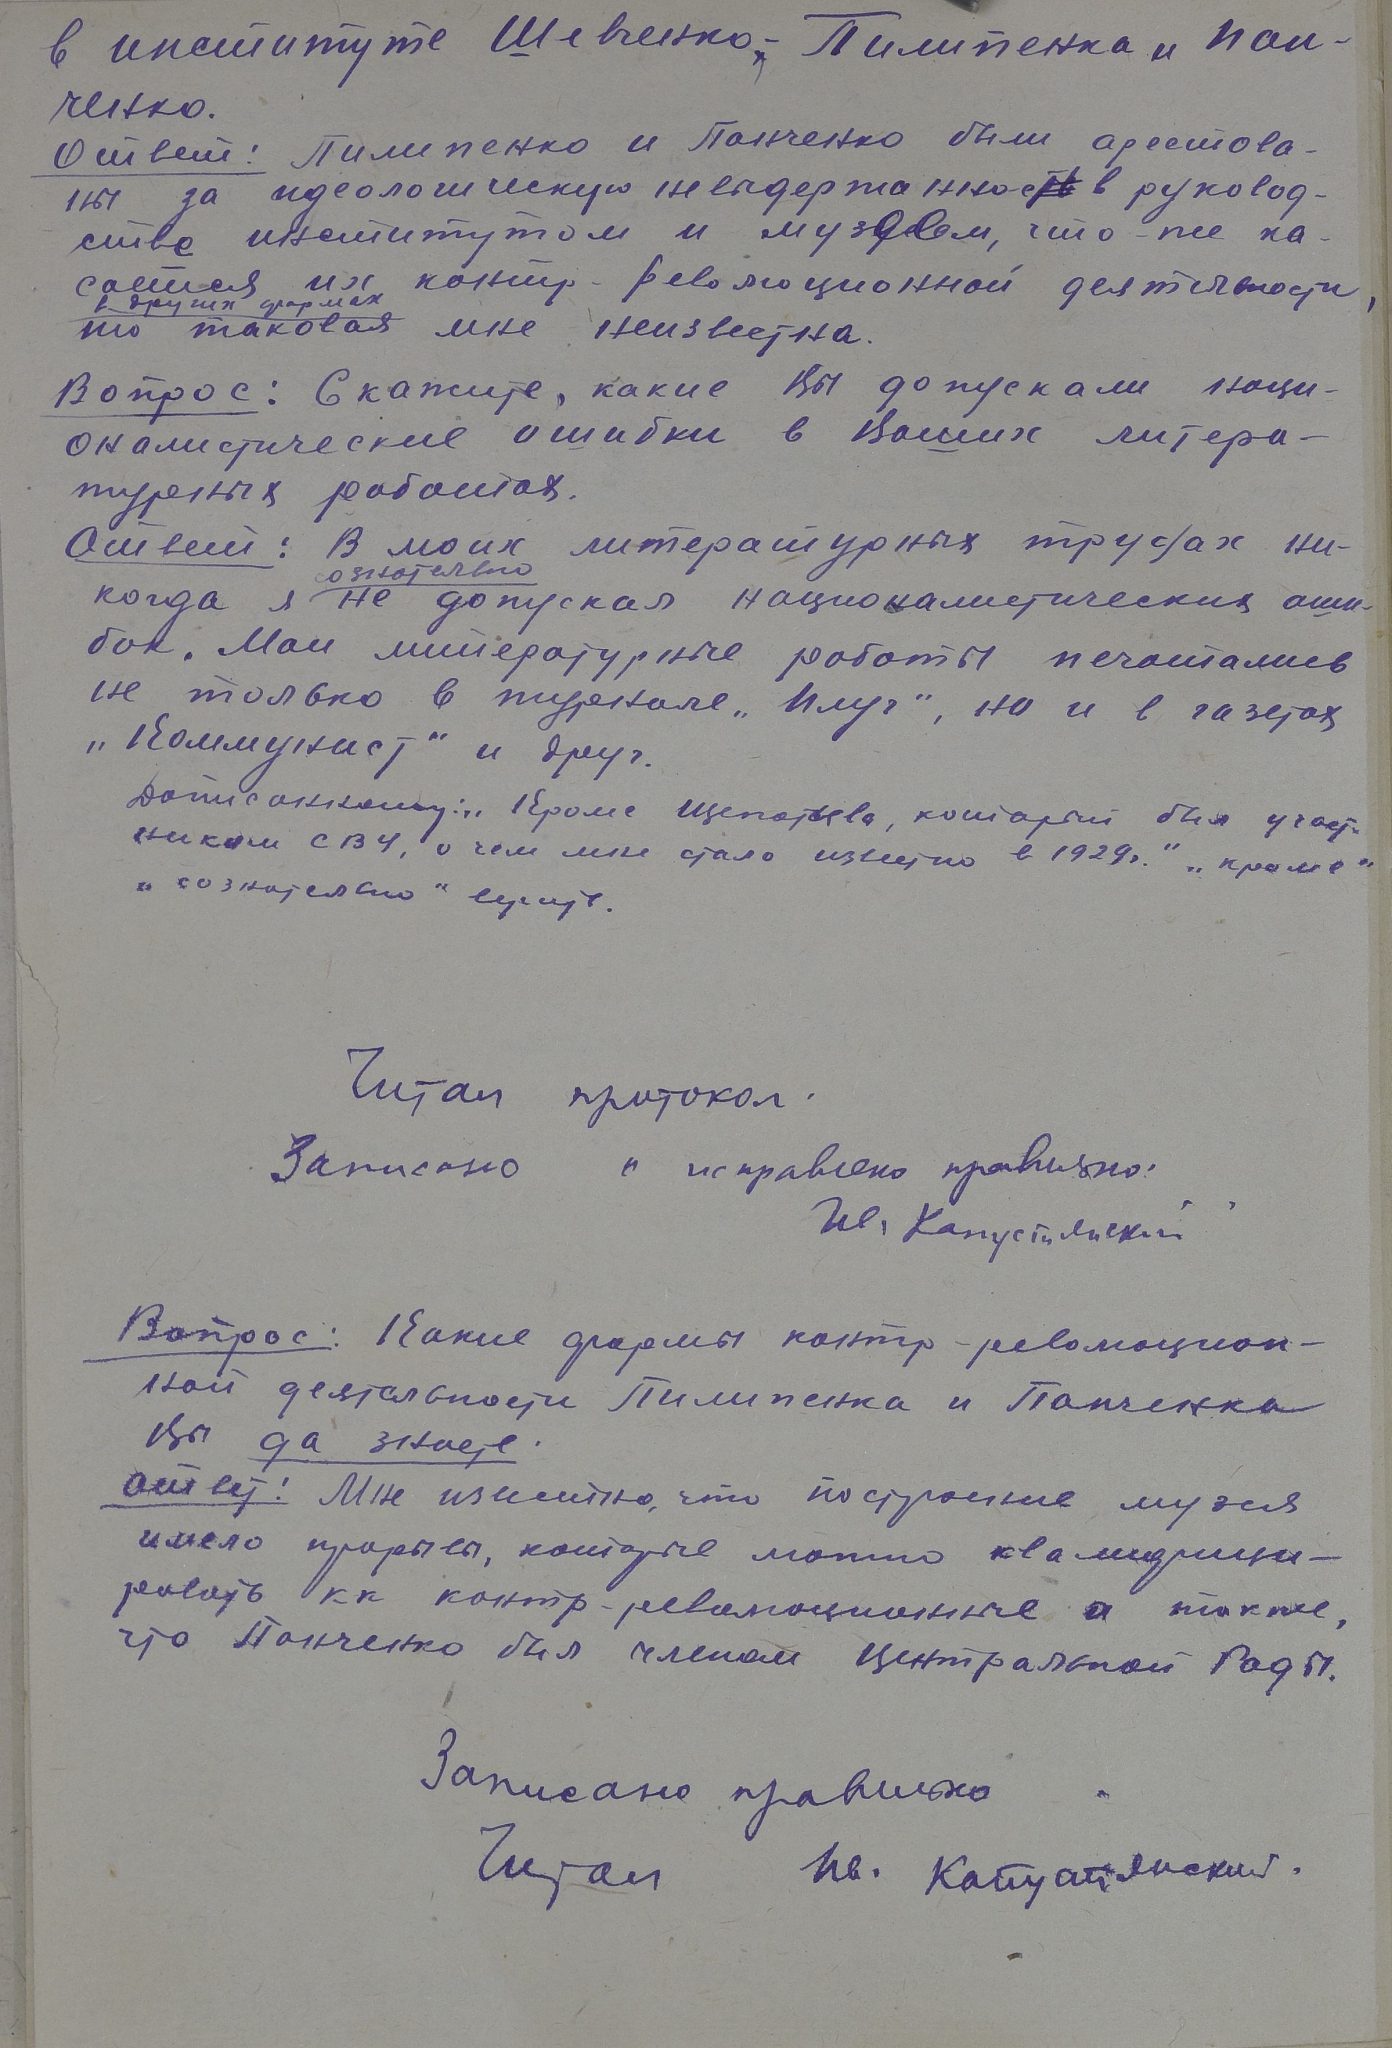 в институте Шевченко, – Пилипенка и Пан-
ченко.
Ответ: Пилипенко и Панченко были арестова-
ны за идеологическую невыдержанность в руковод-
стве институтом и музеем, что-же ка-
сается их контр-революционной деятельности,
в других формах
то таковая мне неизвестна.
Вопрос: Скажите, какие Вы допускали наци-
оналистические ошибки в Ваших литера-
турных работах.
Ответ: В моих литературных трудах ни-
сознательно
когда я не допускал националистических оши-
бок. Мои литературные работы печатались
не только в журнале „Плуг“, но и в газетах
„Коммунист“ и друг.
Дописанному: „Кроме Щепотьева, который был участ-
ником СВУ, о чем мне стало известно в 1929г.“ „кроме“
„сознательно“ верить.
Читал протокол.
Записано и исправлено правильно.
Ив. Капустянский
Вопрос: Какие формы контр-революцион-
ной деятельности Пилипенка и Панченка
Вы да знаете.
Ответ: Мне известно, что построение музея
имело прорывы, которые можно квалифици-
ровать кк контр-революционные а также,
что Панченко был членом Центральной Рады.
Записано правильно
Читал Ив. Капустянский.